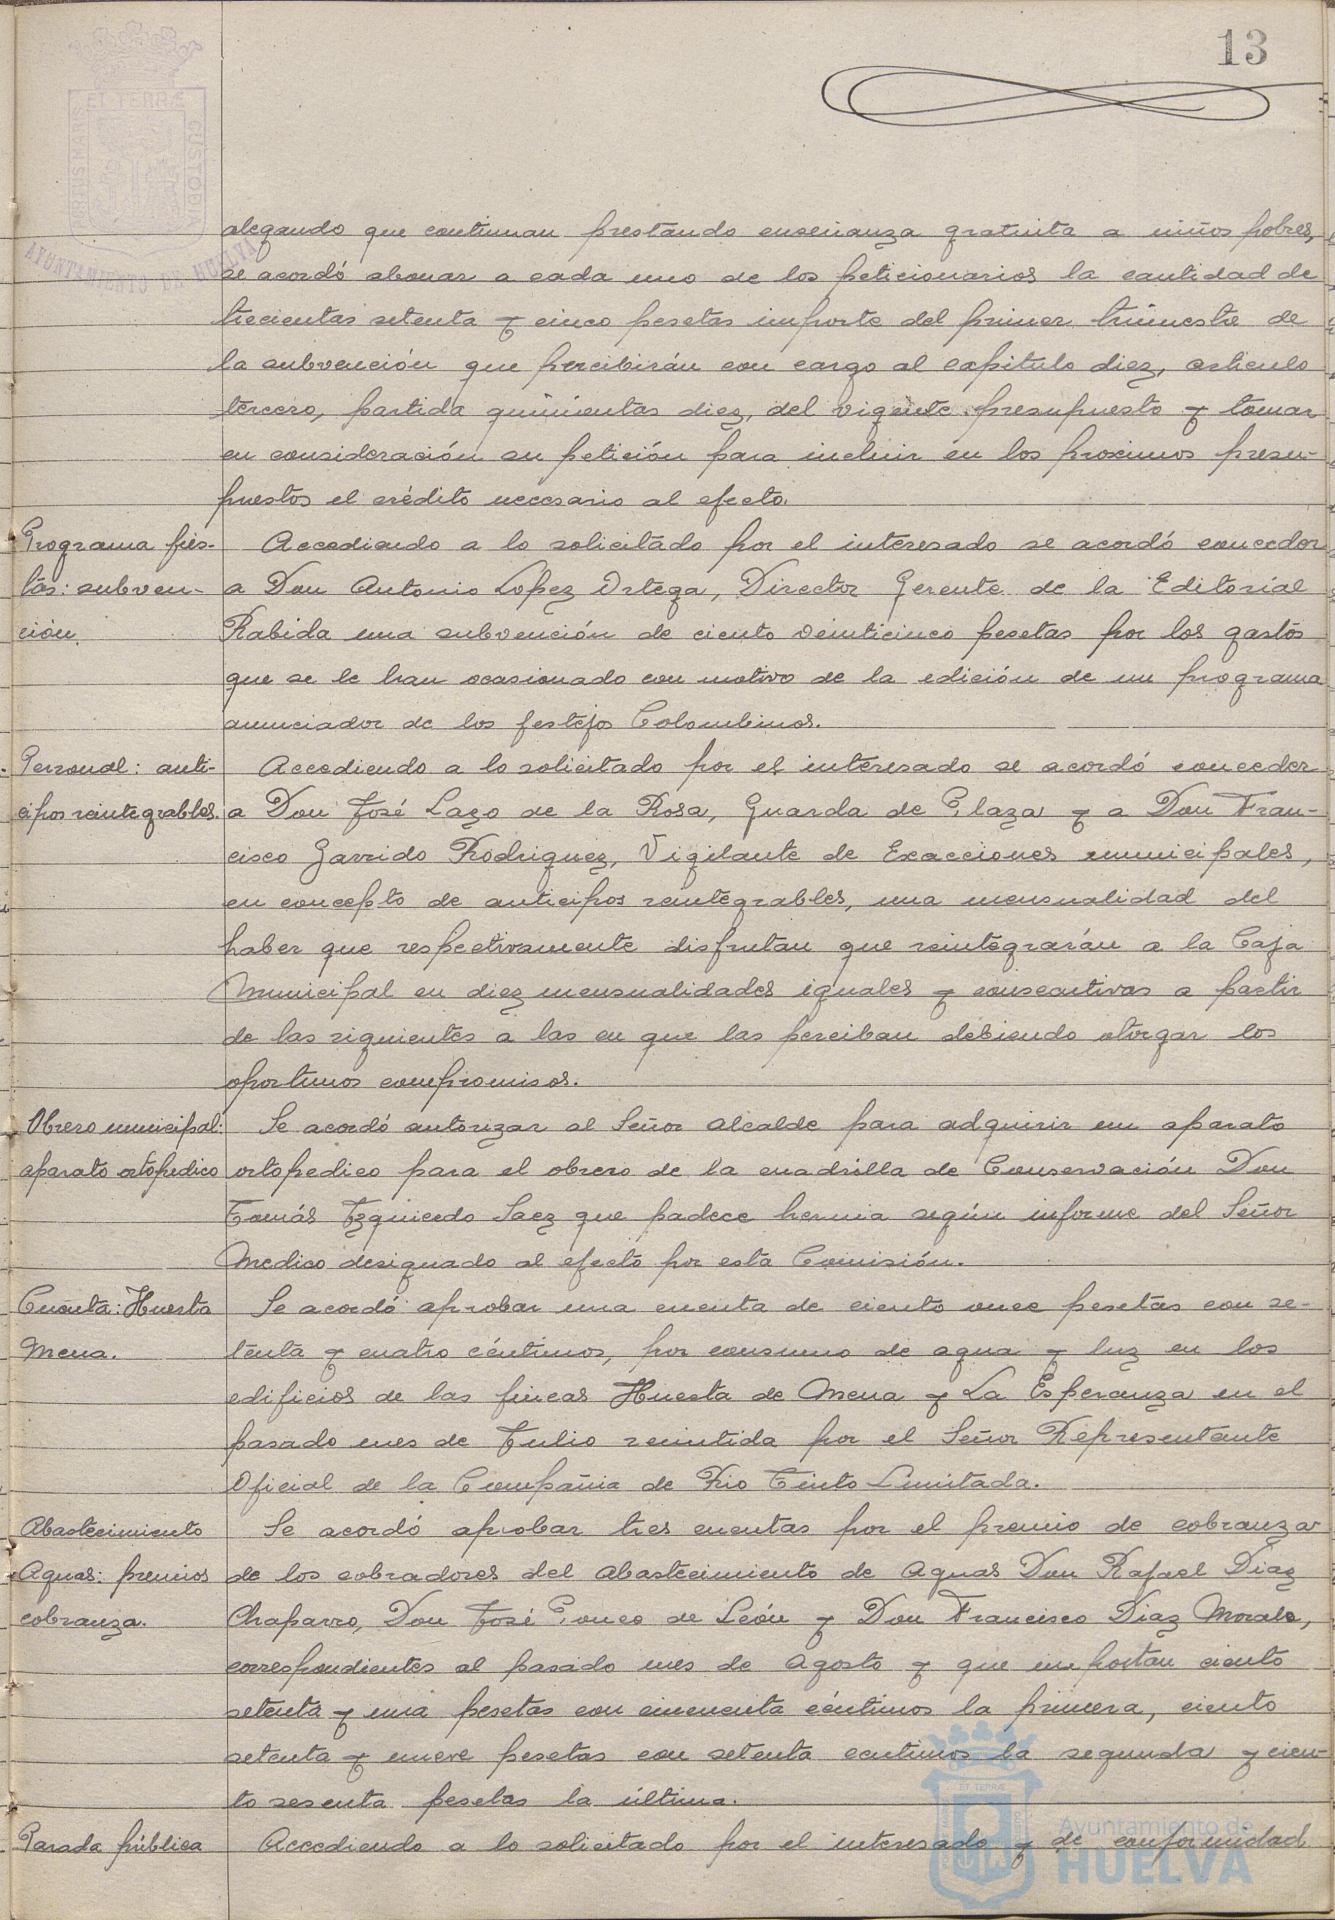 13
PORTUS MARIS ET TERRÆ CUSTODIA
AYUNTAMIENTO DE HUELVA
alegando que continuan prestando enseñanza gratuita a niños pobres,
se acordó abonar a cada uno de los peticionarios la cantidad de
trecientas setenta y cinco pesetas importe del primer trimestre de
la subvención que percibirán con cargo al capitulo diez, articulo
tercero, partida quinientas diez, del vigente presupuesto y tomar
en consideración su petición para incluir en los proximos presu-
puestos el crédito necesario al efecto.
Programa fies-
tas: subven-
ción.
Accediendo a lo solicitado por el interesado se acordó conceder
a Don Antonio Lopez Ortega, Director Gerente de la Editorial
Rabida una subvención de ciento veinticinco pesetas por los gastos
que se le han ocasionado con motivo de la edición de un programa
anunciador de los festejos Colombinos.
Personal: anti-
cipos reintegrables.
Accediendo a lo solicitado por el interesado se acordó conceder
a Don José Lazo de la Rosa, Guarda de Plaza y a Don Fran-
cisco Garrido Rodriguez, Vigilante de Exacciones municipales,
en concepto de anticipos reintegrables, una mensualidad del
haber que respectivamente disfrutan que reintegrarán a la Caja
Municipal en diez mensualidades iguales y consecutivas a partir
de las siguientes a las en que las perciban debiendo otorgar los
oportunos compromisos.
Obrero municipal:
aparato ortopedico
Se acordó autorizar al Señor Alcalde para adquirir un aparato
ortopedico para el obrero de la cuadrilla de Conservación Don
Tomás Izquierdo Saez que padece hernia según informe del Señor
Medico designado al efecto por esta Comisión.
Cuenta: Huerta
Mena.
Se acordó aprobar una cuenta de ciento once pesetas con se-
tenta y cuatro céntimos, por consumo de agua y luz en los
edificios de las fincas Huerta de Mena y La Esperanza en el
pasado mes de Julio remitida por el Señor Representante
Oficial de la Compañia de Rio Tinto Limitada.
Abastecimiento
Aguas: premios
cobranza.
Se acordó aprobar tres cuentas por el premio de cobranza
de los cobradores del Abastecimiento de Aguas Don Rafael Diaz
Chaparro, Don José Ponce de León y Don Francisco Diaz Morals,
correspondientes al pasado mes de Agosto y que importan ciento
setenta y una pesetas con cincuenta céntimos la primera, ciento
setenta y nueve pesetas con setenta centimos la segunda y cien-
to sesenta pesetas la última.
Parada pública
Accediendo a lo solicitado por el interesado y de conformidad
Ayuntamiento de
HUELVA